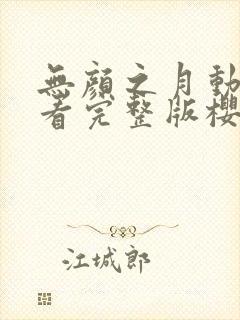 無顏之月動
看完整版櫻
江城郎